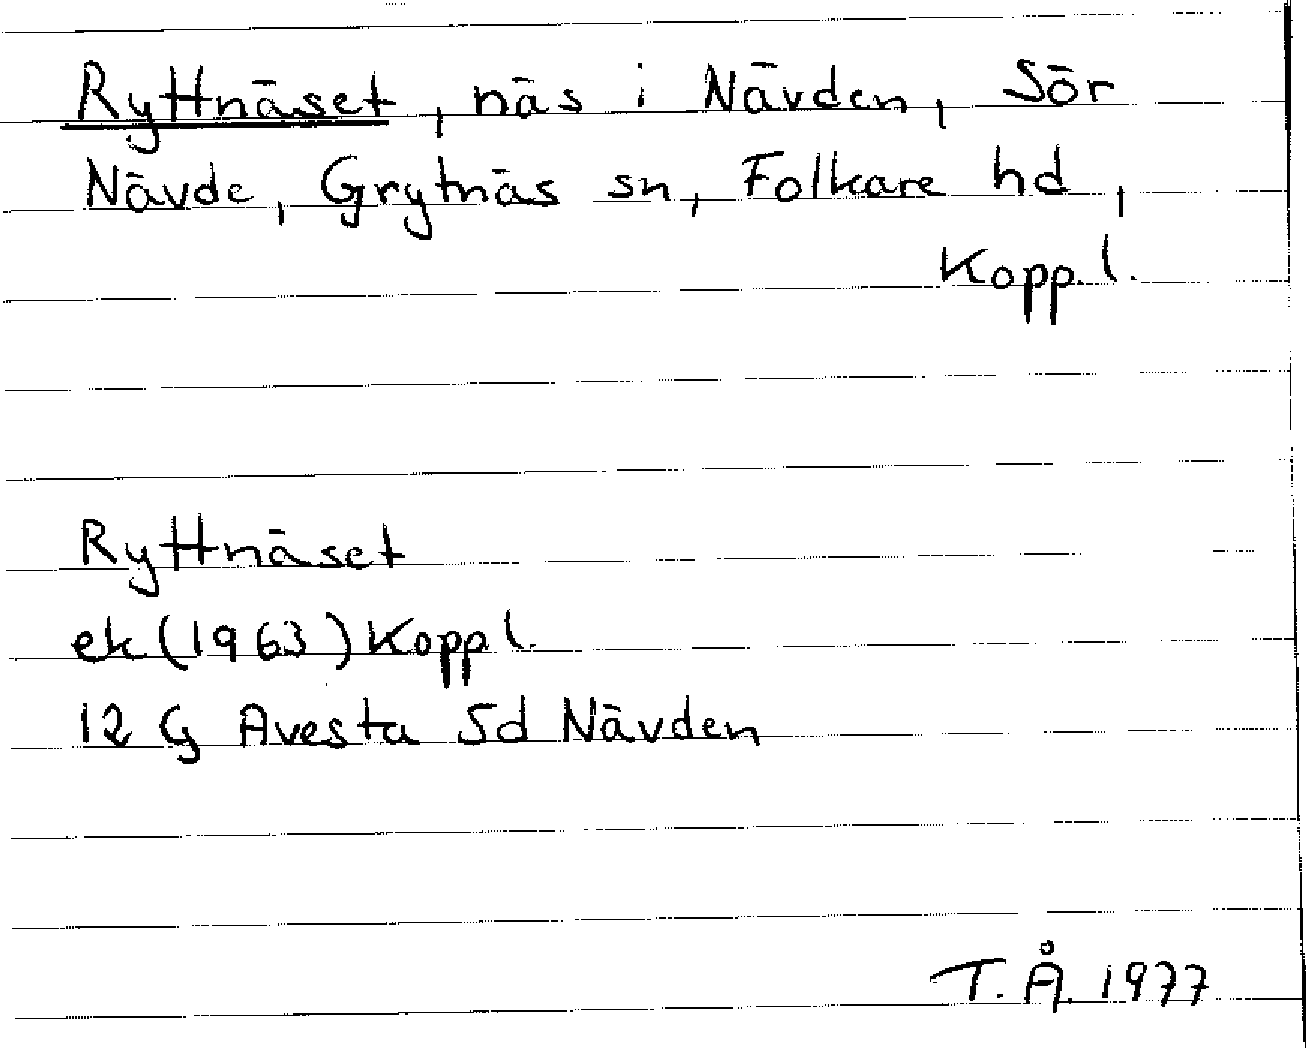 Ryttnäset, näs i Nävden, Sör
Nävde, Grytnäs sn, Folkare hd,
Kopp. l.
Ryttnäset
ek (1963) Kopp l.
12 G Avesta Sd Nävden
T. Å. 1977